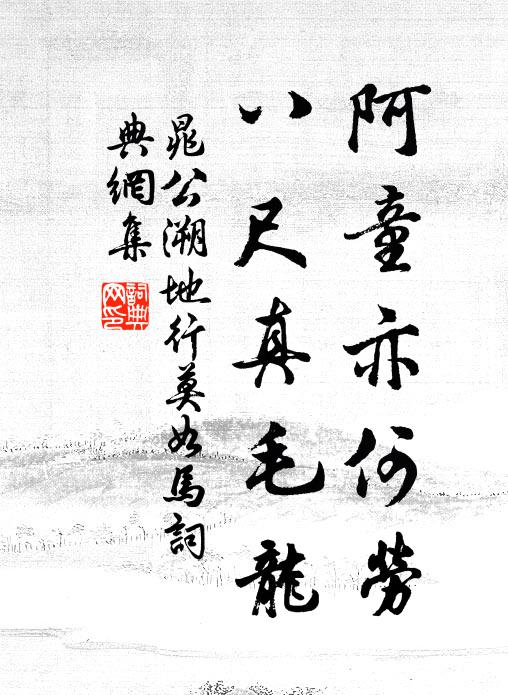 阿童亦何勞
八尺真毛龍
晁公溯地行莫如馬詞
典網集
詞典
网印